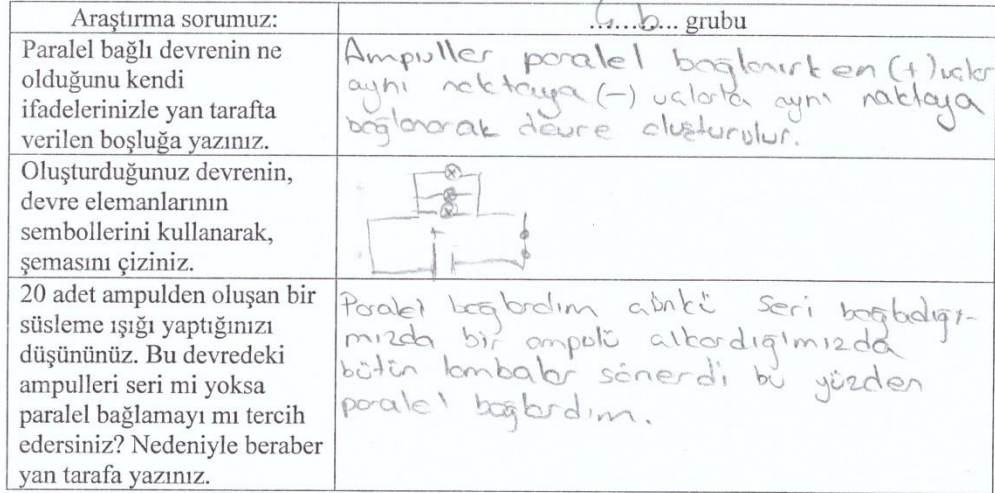 Araştırma sorumuz:
...... b... grubu
Paralel bağlı devrenin ne
olduğunu kendi
ifadelerinizle yan tarafta
verilen boşluğa yazınız.
Ampuller paralel bağlanırken (+) uçlar
aynı noktaya (-) uçlarta aynı noktaya
bağlanarak devre oluşturulur.
Oluşturduğunuz devrenin,
devre elemanlarının
sembollerini kullanarak,
şemasını çiziniz.
+
20 adet ampulden oluşan bir
süsleme ışığı yaptığınızı
düşününüz. Bu devredeki
ampulleri seri mi yoksa
paralel bağlamayı mı tercih
edersiniz? Nedeniyle beraber
yan tarafa yazınız.
Paralel bağlardım çünkü seri bağladığı-
mızda bir ampulü çıkardığımızda
bütün lambalar sönerdi bu yüzden
paralel bağlardım.